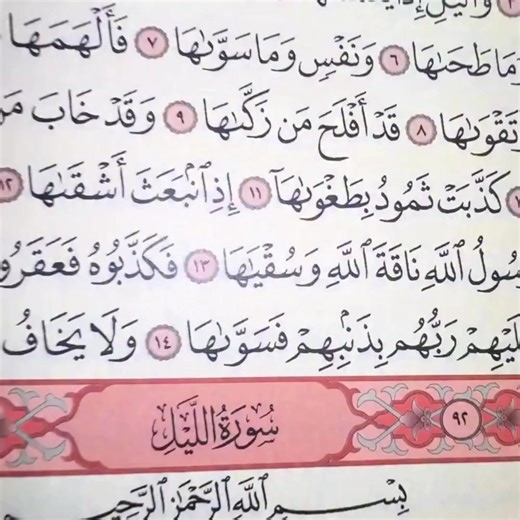 وَمَا طَحَىٰهَا ٦ وَنَفْسٍ وَمَا سَوَّىٰهَا ٧ فَأَلْهَمَهَا
وَتَقْوَىٰهَا ٨ قَدْ أَفْلَحَ مَن زَكَّىٰهَا ٩ وَقَدْ خَابَ مَن
كَذَّبَتْ ثَمُودُ بِطَغْوَىٰهَآ ١١ إِذِ ٱنۢبَعَثَ أَشْقَىٰهَا ١٢
رَسُولُ ٱللَّهِ نَاقَةَ ٱللَّهِ وَسُقْيَٰهَا ١٣ فَكَذَّبُوهُ فَعَقَرُو
عَلَيْهِمْ رَبُّهُم بِذَنۢبِهِمْ فَسَوَّىٰهَا ١٤ وَلَا يَخَافُ
سُورَةُ اللَّيْلِ ٩٢
بِسْمِ ٱللَّهِ ٱلرَّحْمَٰنِ ٱلرَّحِيمِ